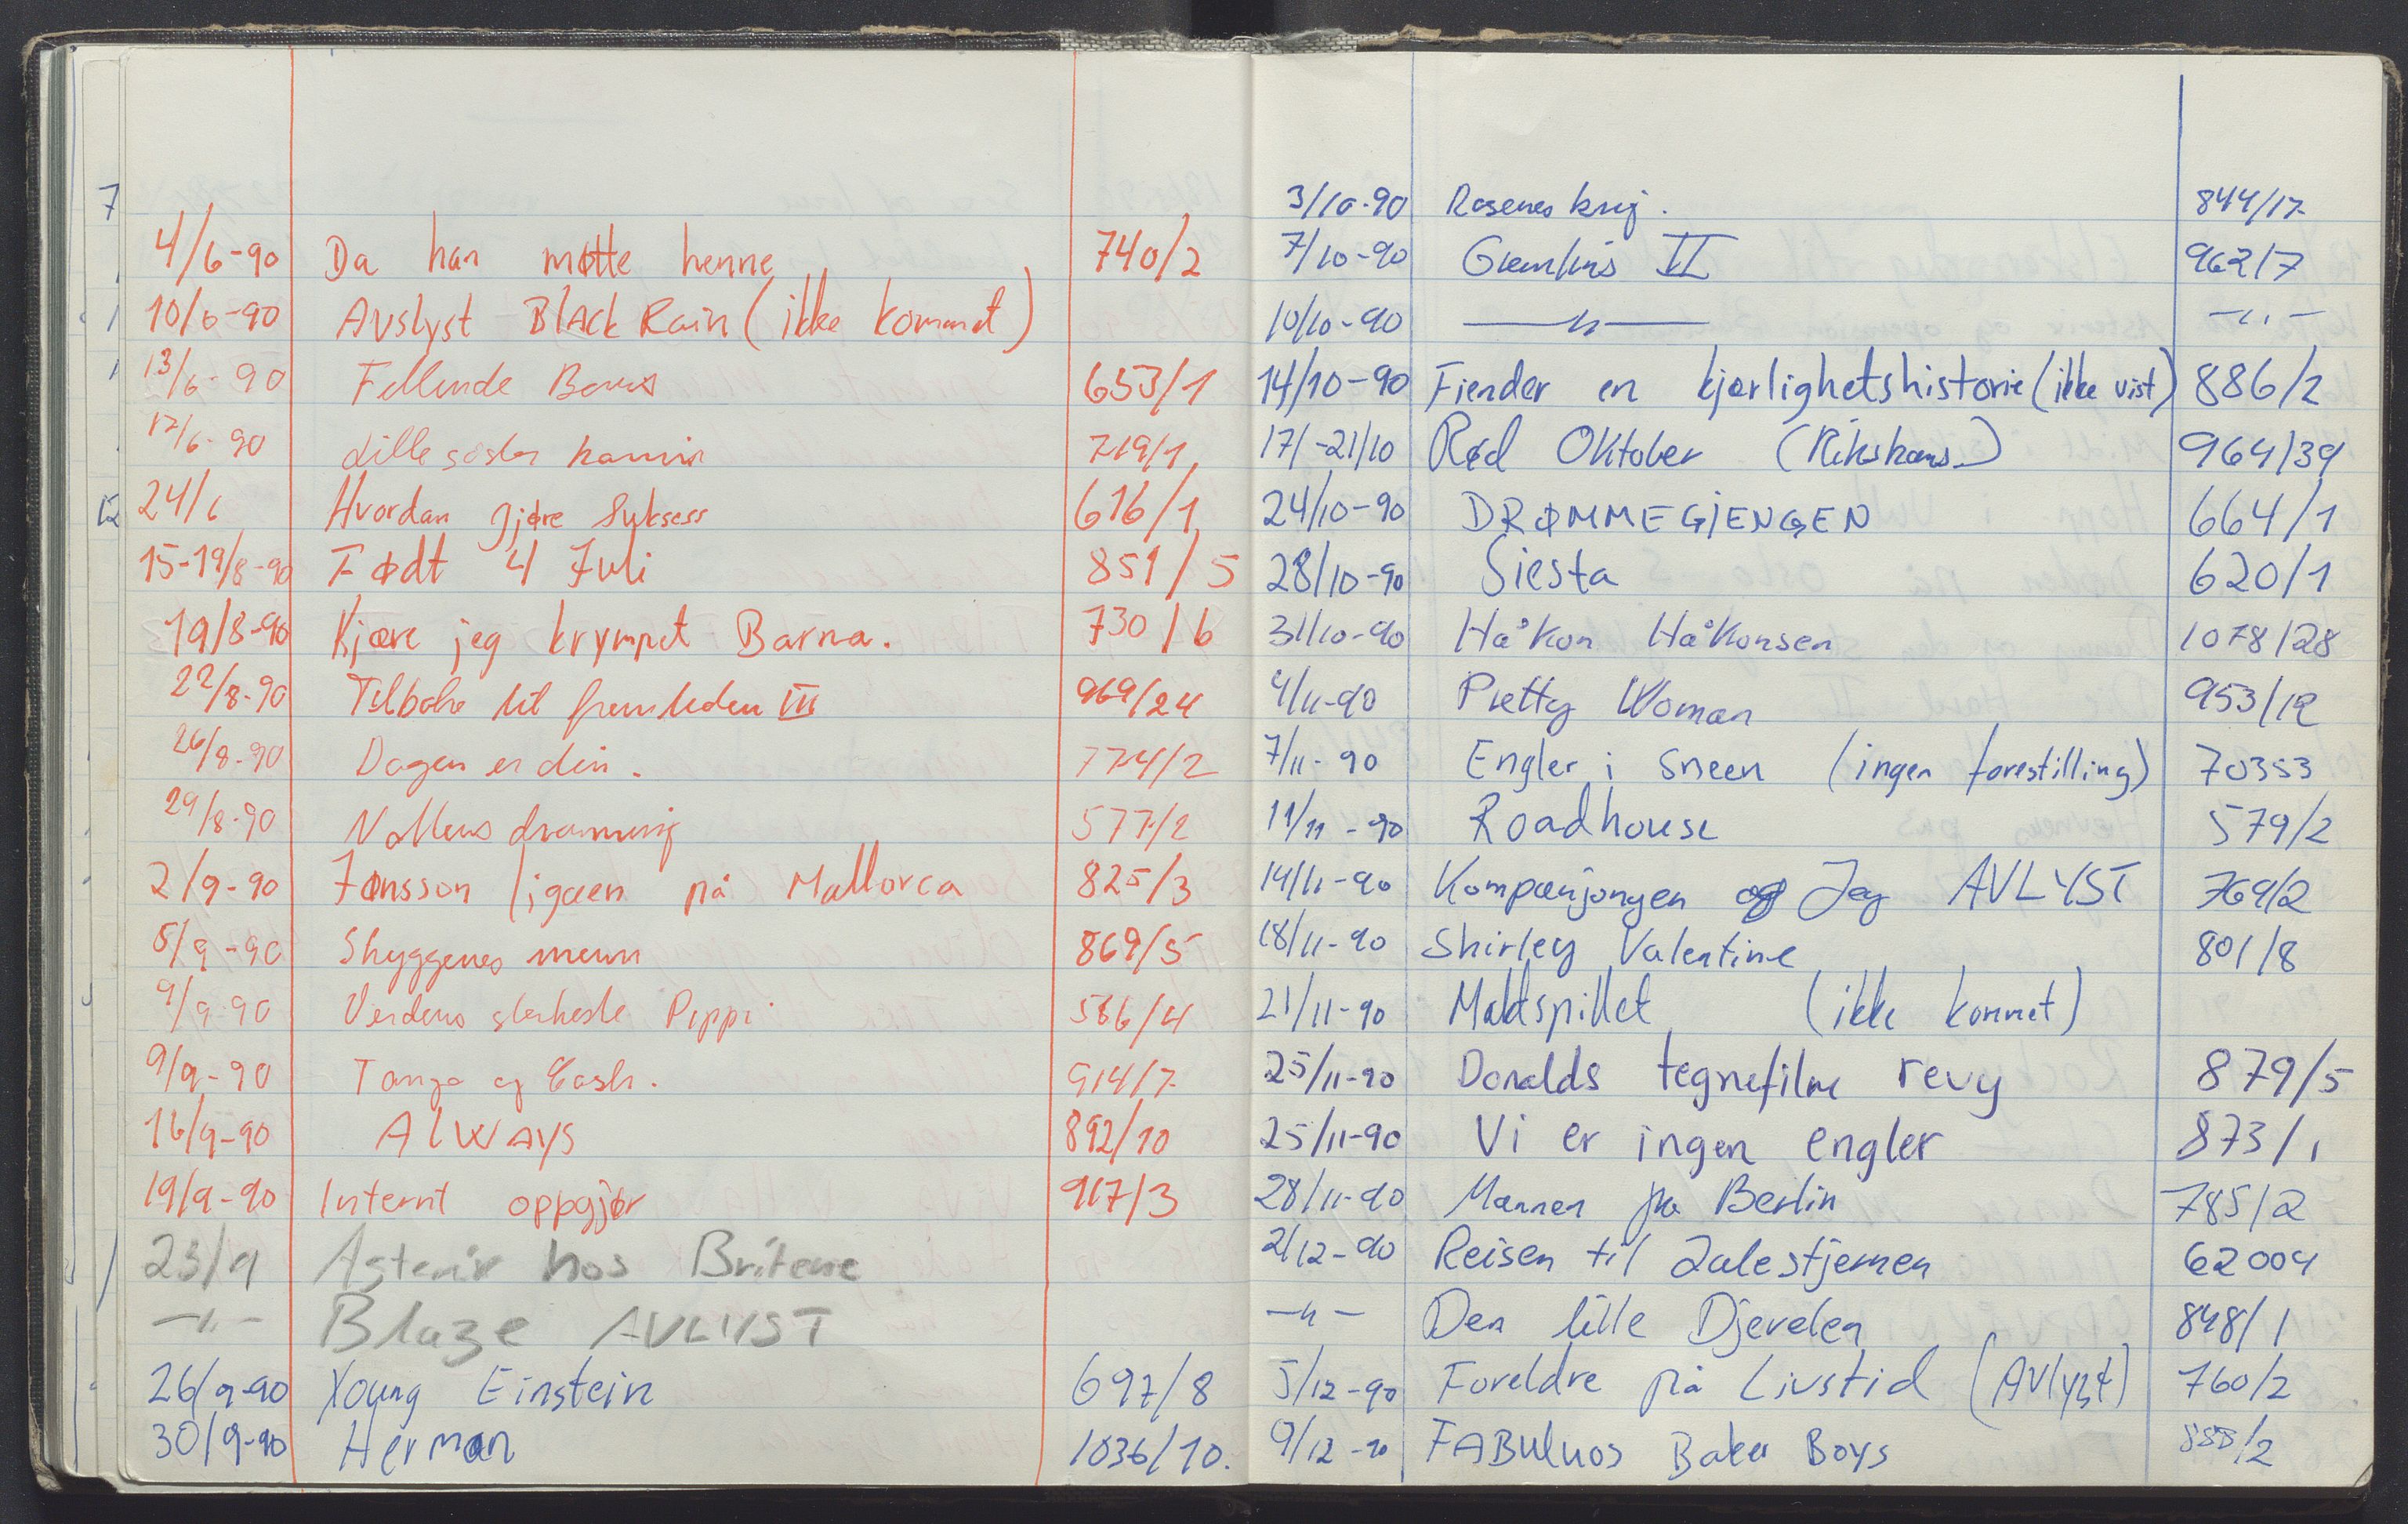 7
4/6-90 Da han møtte henne 740/2
10/6-90 Avslyst BlAck Rain (ikke kommet)
13/6-90 Fellende Bevis 653/1
17/6-90 Lille søster kanin 719/1
24/6 Hvordan gjøre Suksess 616/1
12
15-19/8-90 Født 4 Juli 851/5
19/8-90 Kjære jeg krympet Barna. 730/6
22/8-90 Tilbake til fremtiden III 969/24
26/8-90 Dagen er din. 774/2
29/8-90 Nattens dronning 577/2
2/9-90 Jønsson ligaen på Mallorca 825/3
5/9-90 Skyggenes menn 869/5
9/9-90 Verdens sterkeste Pippi 586/4
9/9-90 Tango og Cash. 914/7
16/9-90 AlWAYS 892/10
19/9-90 Internt oppgjør 917/3
23/9 Asterix hos Britene
—"— Blaze AVLYST
26/9-90 Young Einstein 697/8
30/9-90 Herman 1036/10.
3/10-90 Rosenes krig. 844/17
7/10-90 Gremlins II 962/7
10/10-90 —"— —"—
14/10-90 Fiender en kjærlighetshistorie (ikke vist) 886/2
17/-21/10 Rød Oktober (Rikskons.) 964/39
24/10-90 DRØMMEGJENGEN 664/1
28/10-90 Siesta 620/1
31/10-90 Håkon Håkonsen 1078/28
4/11-90 Pretty Woman 953/12
7/11-90 Engler i sneen (ingen forestilling) 70353
11/11-90 Roadhouse 579/2
14/11-90 Kompanjongen og Jeg AVLYST 769/2
18/11-90 Shirley Valentine 801/8
21/11-90 Maktspillet (ikke kommet)
25/11-90 Donalds tegnefilm revy 879/5
25/11-90 Vi er ingen engler 873/1
28/11-90 Mannen fra Berlin 785/2
2/12-90 Reisen til Julestjernen 62004
—"— Den lille Djevelen 848/1
5/12-90 Foreldre på Livstid (AVlyst) 760/2
9/12-90 FABuluos Baker Boys 888/2